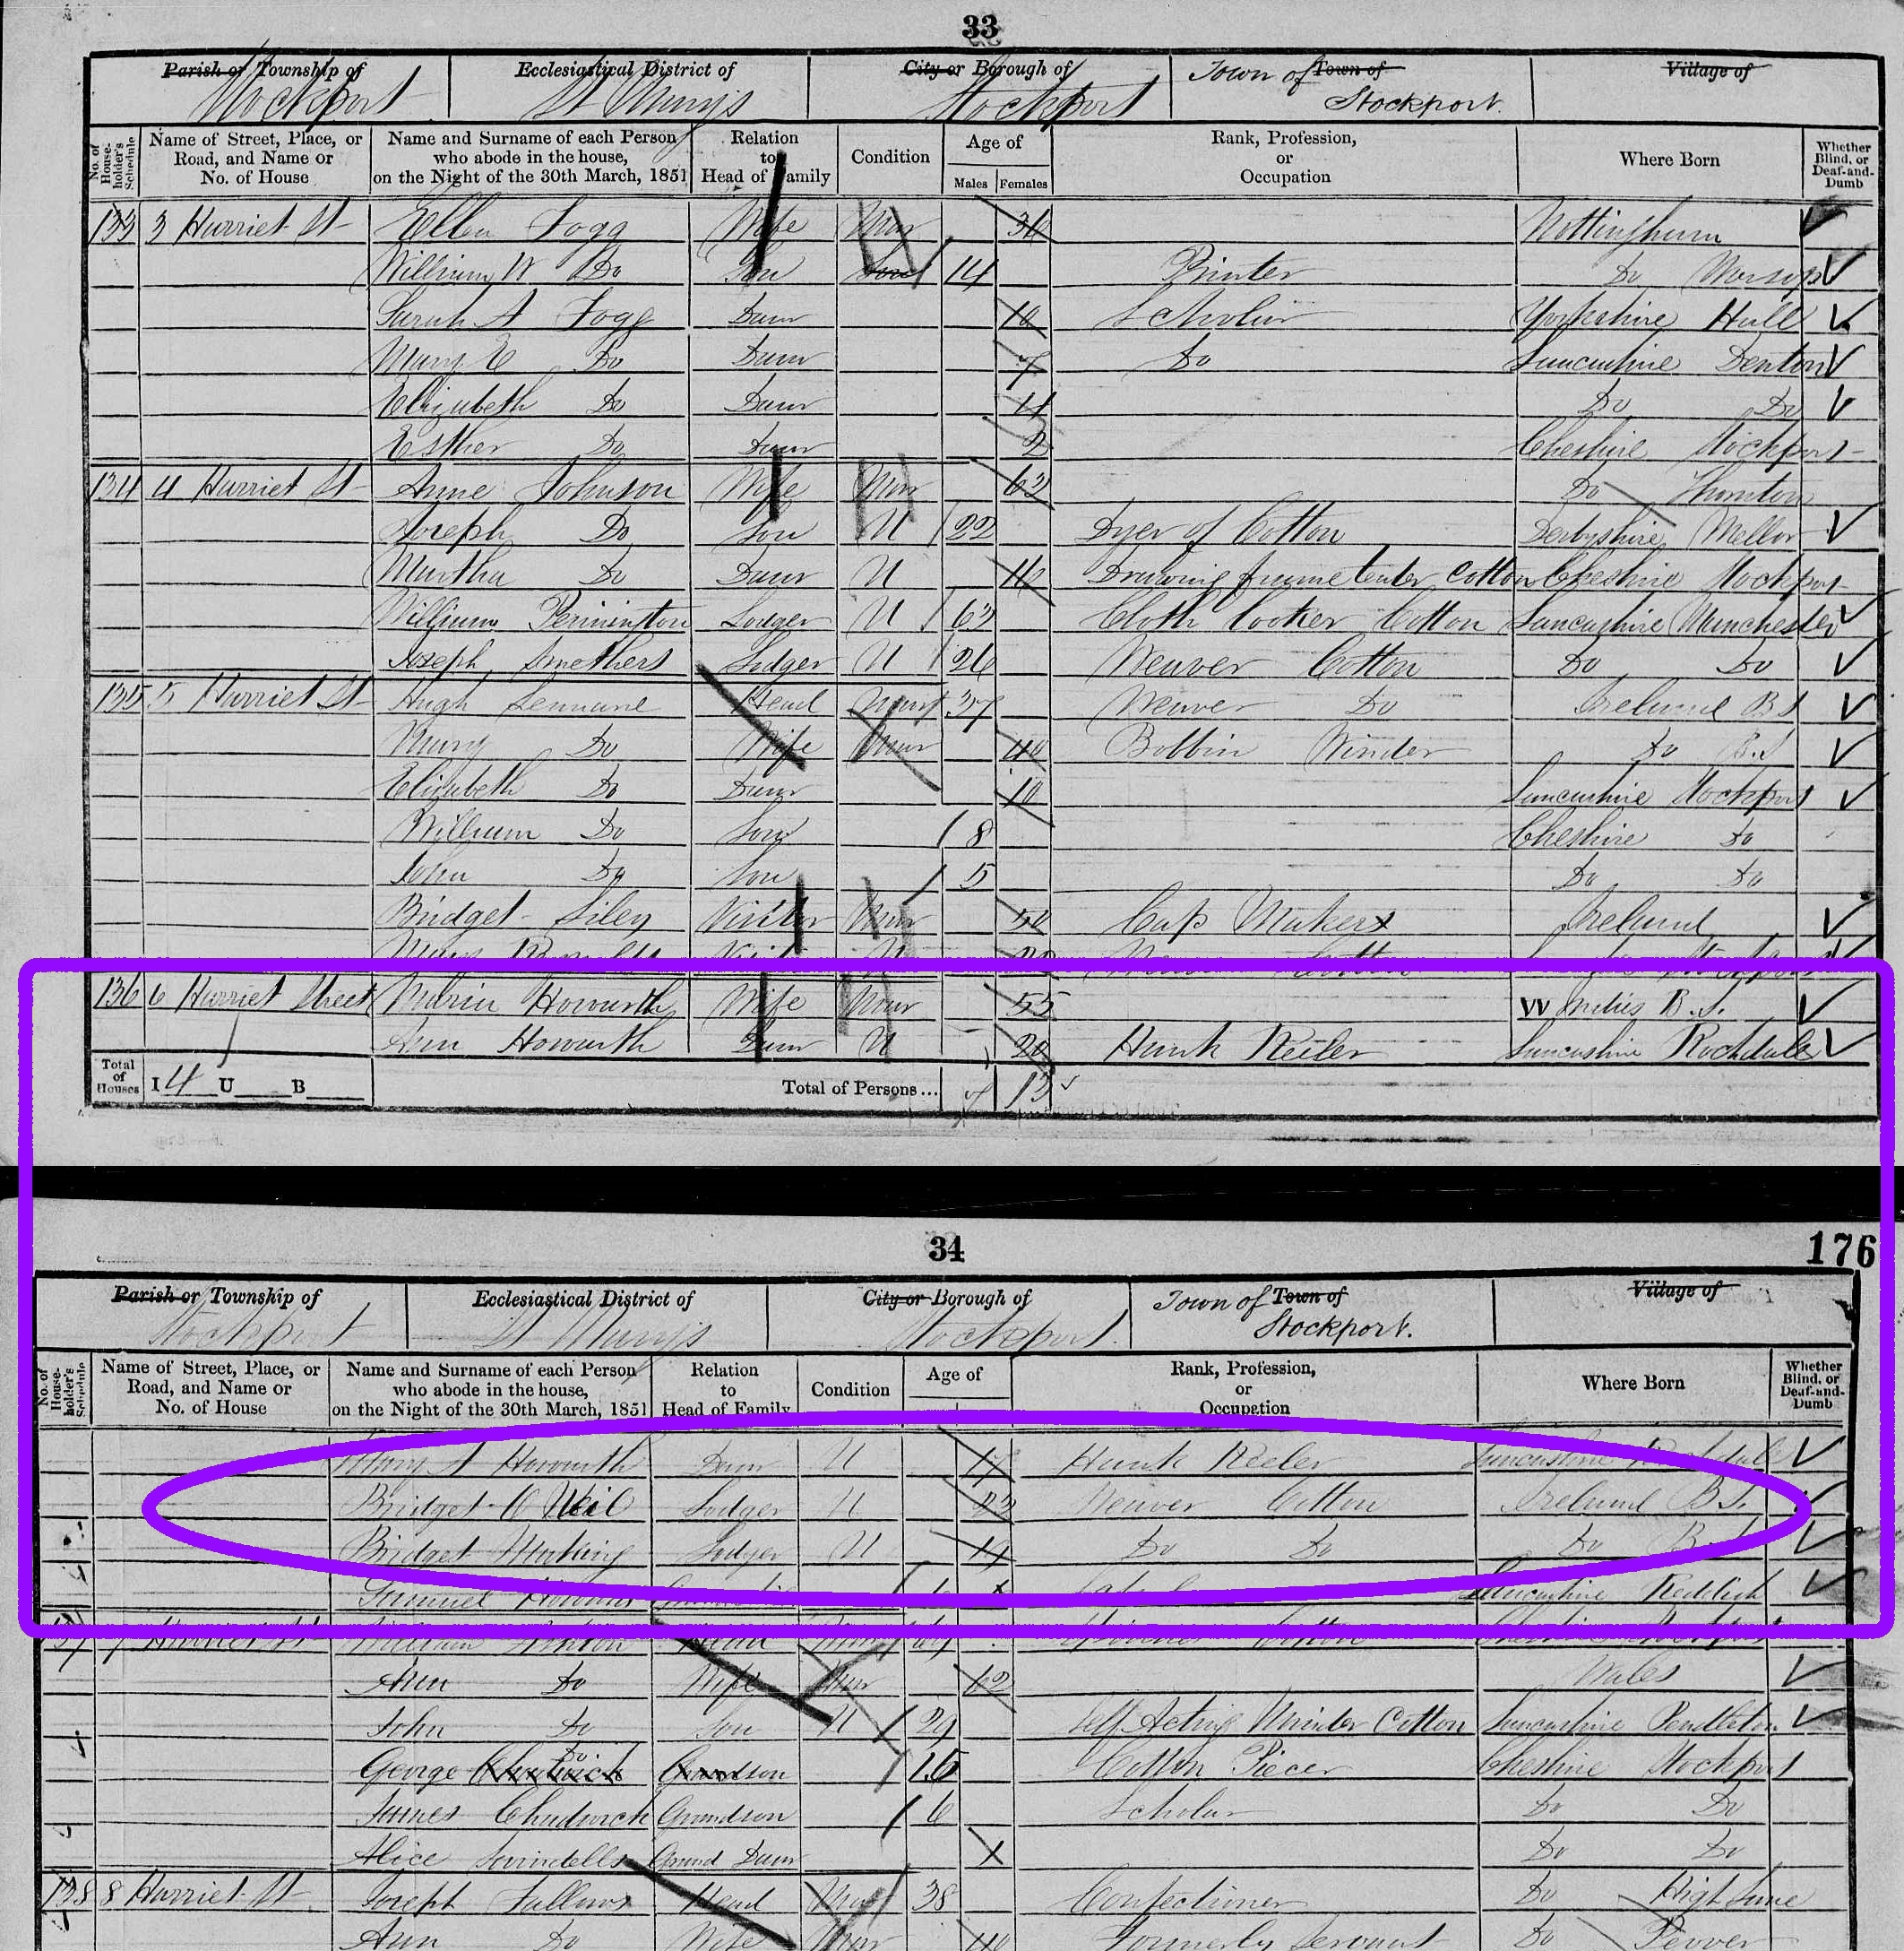 33
Parish or Township of Stockport
Ecclesiastical District of St Marys
City or Borough of Stockport
Town of Town of Stockport.
Village of
No. of House-holder's Schedule
Name of Street, Place, or Road, and Name or No. of House
Name and Surname of each Person who abode in the house, on the Night of the 30th March, 1851
Relation to Head of Family
Condition
Age of
Males Females
Rank, Profession, or Occupation
Where Born
Whether Blind, or Deaf-and-Dumb
133 3 Harriet St Ellen Fogg Wife Mar 36 Nottingham
William W Do Son 14 Printer Do Worsop
Sarah A Fogg Daur 10 Scholar Yorkshire Hull
Mary E Do Daur 7 Do Lancashire Denton
Elizabeth Do Daur 4 Do Do
Esther Do Daur 2 Cheshire Stockport
134 4 Harriet St Anne Johnson Wife Mar 63 Do
Joseph Do Son U 22 Dyer of Cotton Derbyshire Mellor
Martha Do Daur U 16 Drawing frame tenter Cotton Cheshire Stockport
William Pennington Lodger U 63 Cloth Looker Cotton Lancashire Manchester
Joseph Smethers Lodger U 26 Weaver Cotton Do Do
135 5 Harriet St Hugh Lennane Head Mar 37 Weaver Do Ireland B.S
Mary Do Wife Mar 40 Bobbin Winder Do B.S
Elizabeth Do Daur 10 Lancashire Stockport
William Do Son 8 Cheshire Do
John Do Son 5 Do Do
Bridget Liley Visitor Mar 50 Cap Maker Ireland
Cotton
136 6 Harriet Street Maria Howarth Wife Mar 55 W Indies B.S.
Ann Howarth Daur U 20 Hank Reeler Lancashire Rochdale
Total of Houses I 4 U B Total of Persons... 7 13
34
176
Parish or Township of Stockport
Ecclesiastical District of St Marys
City or Borough of Stockport
Town of Town of Stockport.
Village of
No. of House-holder's Schedule
Name of Street, Place, or Road, and Name or No. of House
Name and Surname of each Person who abode in the house, on the Night of the 30th March, 1851
Relation to Head of Family
Condition
Age of
Rank, Profession, or Occupation
Where Born
Whether Blind, or Deaf-and-Dumb
Mary A Howarth Daur U 17 Hank Reeler Lancashire Rochdale
Bridget O Neil Lodger U 23 Weaver Cotton Ireland B.S.
Bridget Lodger U 19 Do Do Do B.S
Samuel Lancashire Reddish
7 Harriet St William Ashton Head Cotton
Ann Do Wife Mar 62 Wales
John Do Son U 29 Self Acting Minder Cotton Lancashire Pendleton
George Do Chadwick Grandson 15 Cotton Piecer Cheshire Stockport
James Chadwick Grandson 6 Scholar Do Do
Alice Grand Daur Do Do
138 8 Harriet St Joseph Fallows Head Mar 38 Confectioner Do High Lane
Ann Do Wife Mar 40 Formerly Servant Do Pevver